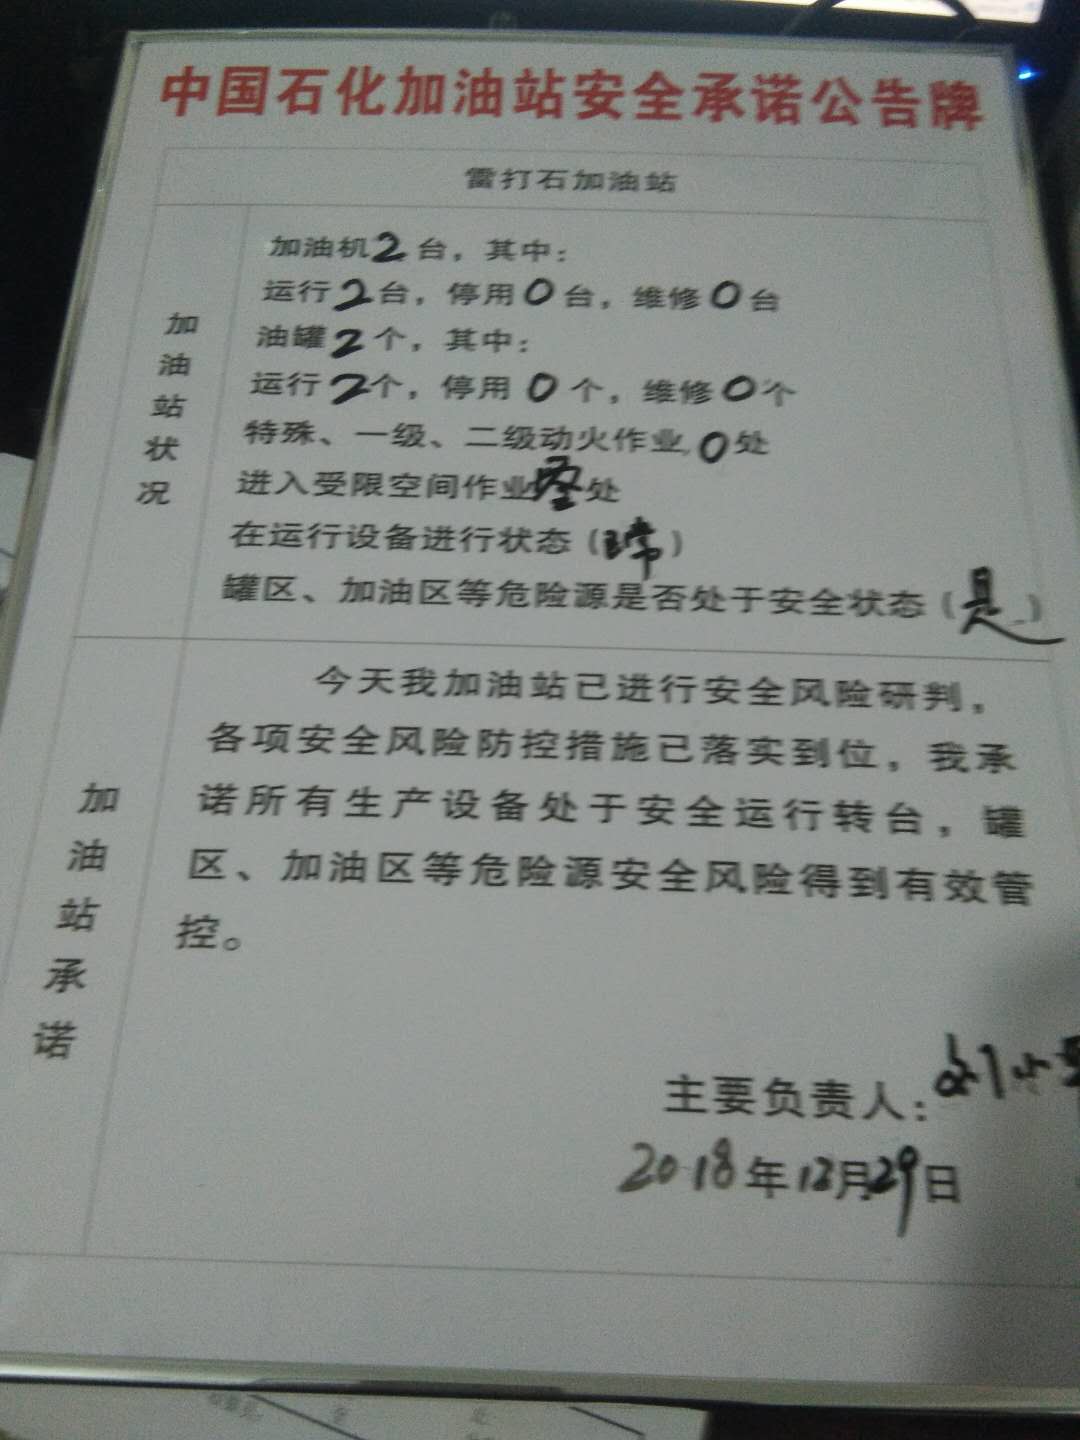 中国石化加油站安全承诺公告牌
雷打石加油站
加油站状况
加油机2台，其中：
运行2台，停用0台，维修0台
油罐2个，其中：
运行2个，停用0个，维修0个
特殊、一级、二级动火作业0处
进入受限空间作业 处
在运行设备进行状态（正常）
罐区、加油区等危险源是否处于安全状态（是）
加油站承诺
今天我加油站已进行安全风险研判，
各项安全风险防控措施已落实到位，我承
诺所有生产设备处于安全运行转台，罐
区、加油区等危险源安全风险得到有效管
控。
主要负责人：刘小
2018年12月29日